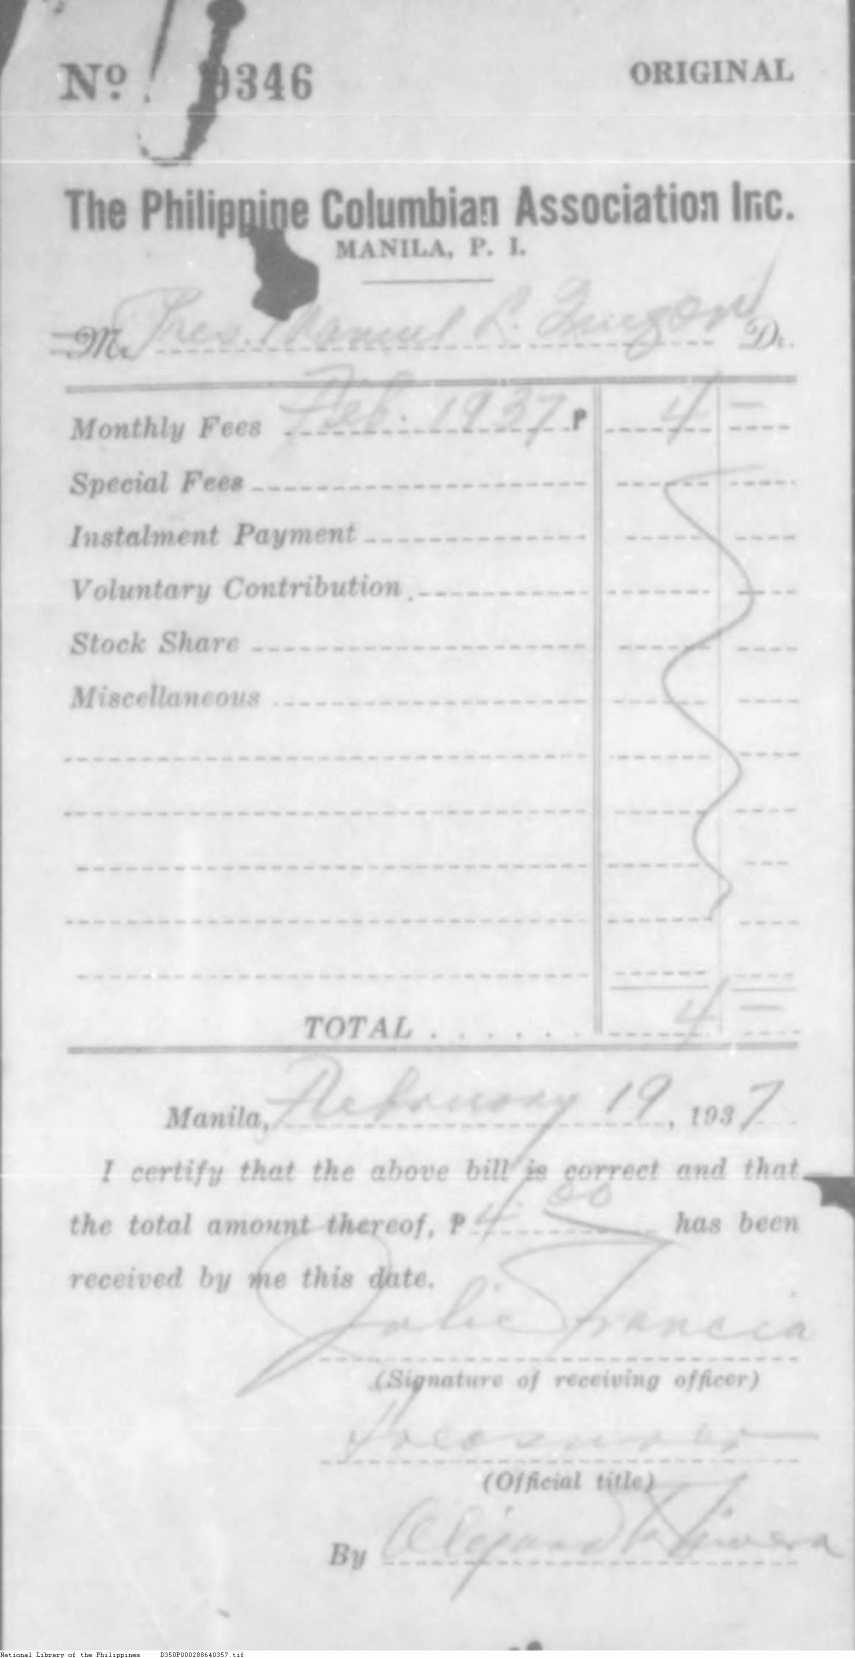 Nº 9346 ORIGINAL
The Philippine Columbian Association Inc.
MANILA, P. I.
M. Pres. Manuel L. Quezon Dr.
Monthly Fees Feb. 1937 ₱ 4 —
Special Fees
Instalment Payment
Voluntary Contribution
Stock Share
Miscellaneous
TOTAL . . . . . . 4 —
Manila, February 19, 1937
I certify that the above bill is correct and that
the total amount thereof, ₱ 4.00 has been
received by me this date.
Julio Francia
(Signature of receiving officer)
Treasurer
(Official title)
By Alejandro Rivera
National Library of the Philippines D350P000288640357.tif